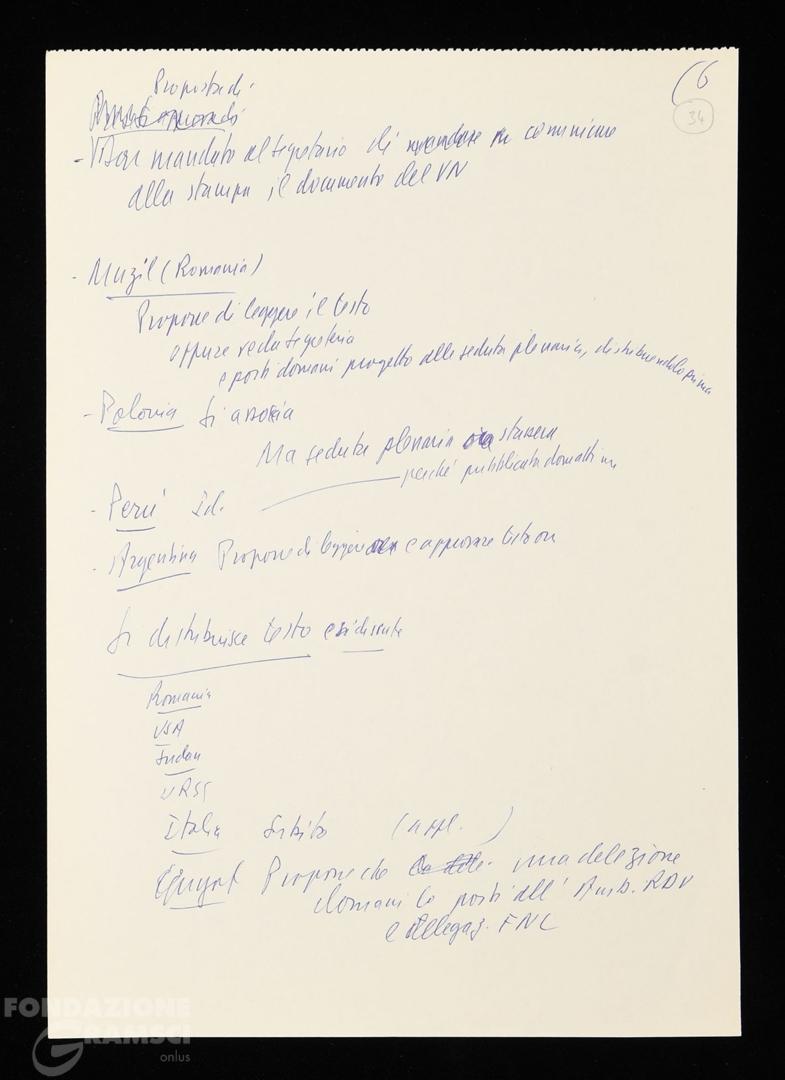 (6
34
Proposta di
- Dar mandato al segretario di comunicare
alla stampa il documento del VN
- Muzil (Romania)
Propone di leggere il testo
oppure veda segreteria
e porti domani progetto alla seduta plenaria, distribuendolo prima
- Polonia Si associa
Ma seduta plenaria stasera
perché pubblicata domattina
- Perú Id.
- Argentina Propone di leggere e approvare testo ora
Si distribuisce testo e si discute
Romania
USA
Sudan
URSS
Italia Subito (appl. )
Egypt Propone che una delegazione
domani lo porti all' Amb. RDV
e delegaz. FNL
FONDAZIONE
GRAMSCI
onlus